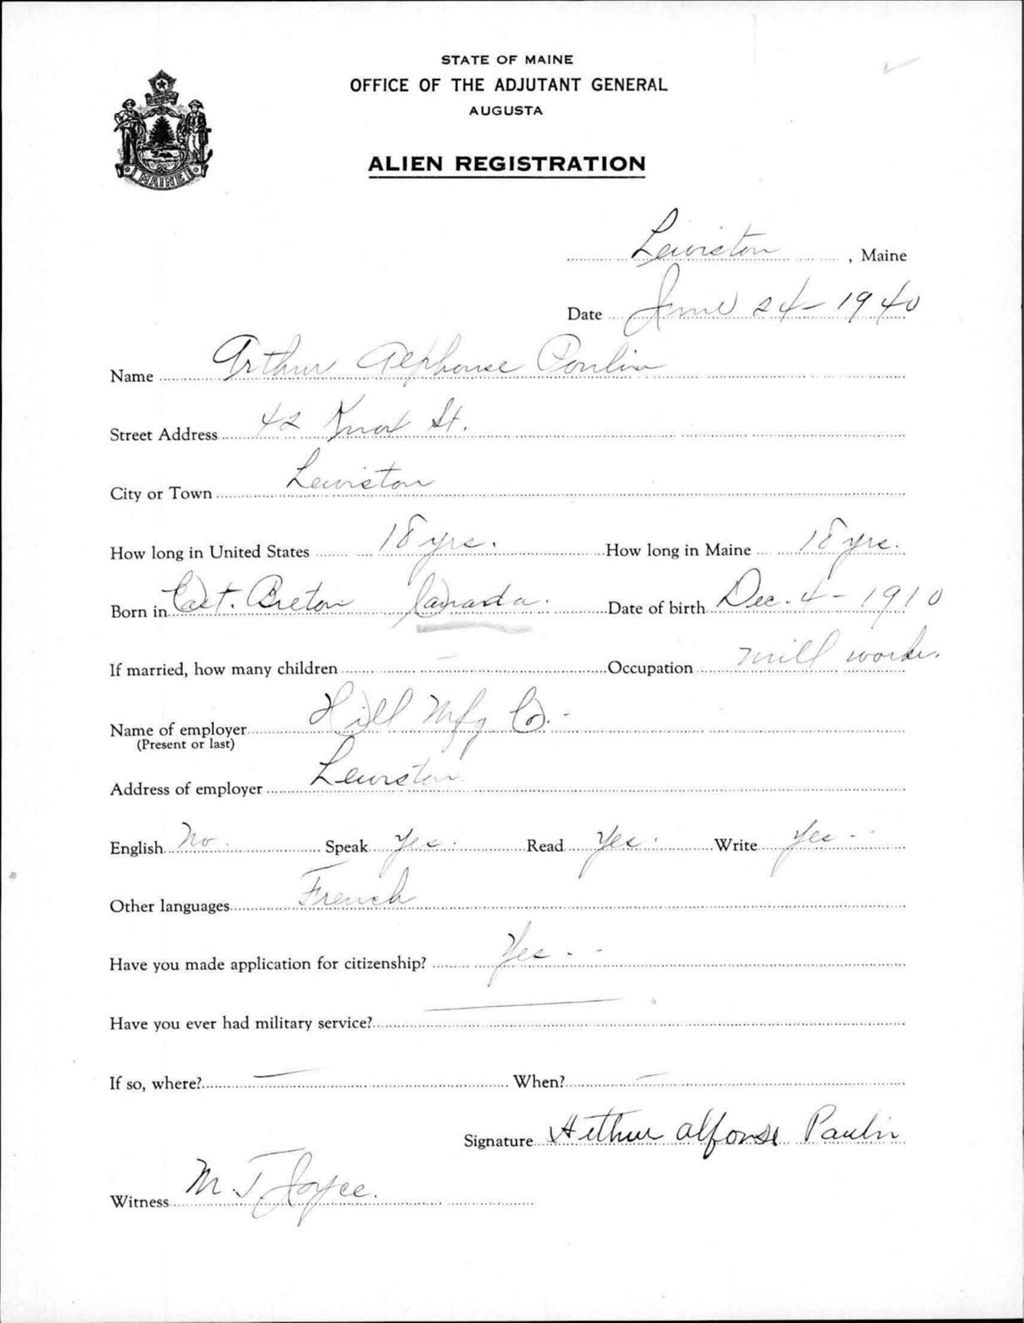 STATE OF MAINE
OFFICE OF THE ADJUTANT GENERAL
AUGUSTA
ALIEN REGISTRATION
MAINE
Lewiston, Maine
Date June 24-1940
Name Arthur Alphonse Poulin
Street Address 42 Knox St.
City or Town Lewiston
How long in United States 18 yrs. How long in Maine 18 yrs.
Born in East. Breton Canada. Date of birth Dec. 4-1910
If married, how many children - Occupation mill work.
Name of employer Hill Mfg Co. -
(Present or last)
Address of employer Lewiston
English No. Speak Yes. Read Yes. Write Yes -
Other languages French
Have you made application for citizenship? Yes. -
Have you ever had military service? —
If so, where? — When? —
Signature Arthur alfonse Paulin
Witness M. T Joyce.